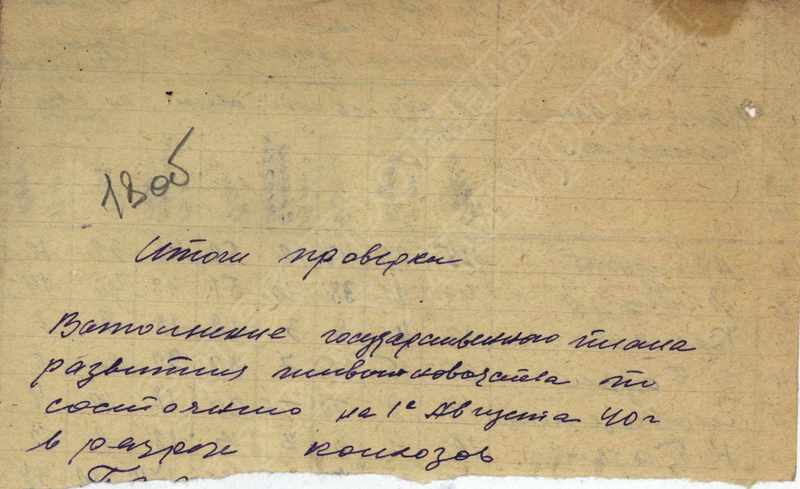 13 об
Итоги проверки
Выполнение государственного плана
развития животноводства по
состоянию на 1е Августа 40 г
в разрезе колхозов